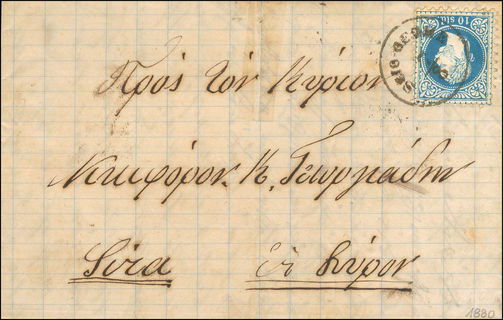 Πρὸς τὸν Κύριον
Νικηφόρον. Κ. Γεωργιάδην
Sira εἰς Σύρον
10 sld
1880